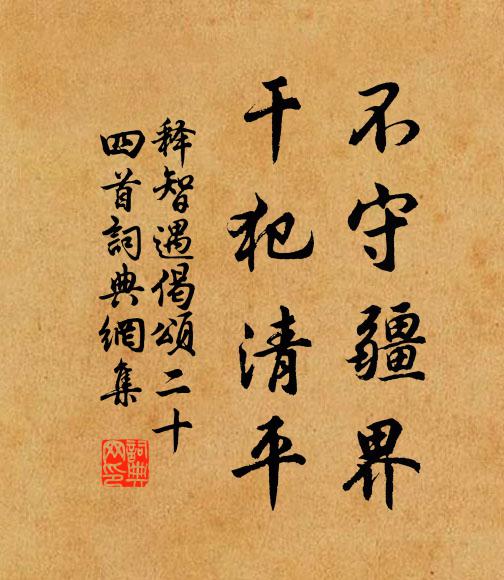 不守疆界
干犯清平
释智遇偈頌二十
四首詞典網集
詞典
网印